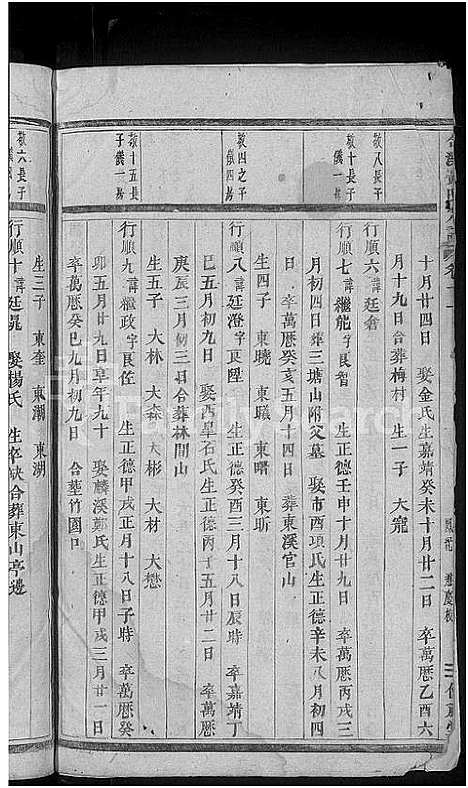 十月廿四日 娶金氏生嘉靖癸未十月廿二日 卒萬曆乙酉六
月十九日合葬梅村 生一子 大寵
敬八長子
行順六諱廷耆
敬十長子
儀一房
行順七諱繼能字良智 生正德壬申十月廿九日 卒萬曆丙戌三
月初四日葬三塘山附父墓 娶市酉項氏生正德辛未八月初四
日 卒萬曆癸亥五月十四日 葬東溪官山
生四子 東曉 東曦 東曙 東昕
敬四之子
儀四房
行順八諱廷澄字良陞 生正德癸酉三月十八日辰時 卒嘉靖丁
巳五月初九日 娶西阜石氏生正德丙子五月廿二日 卒萬曆
庚辰三月初三日合葬林間山
生五子 大林 大森 大彬 大材 大懋
敬十五長
子儀一房
行順九諱繼政字良佐 生正德甲戌正月十八日子時 卒萬曆癸
卯五月廿九日享年九十 娶麟溪鄭氏生正德甲戌三月廿一日
卒萬曆癸巳九月初九日 合塟竹園口
生三子 東奎 東瀛 東湖
敬六長子
行順十諱廷晁 娶楊氏 生卒缺合葬東山亭邊